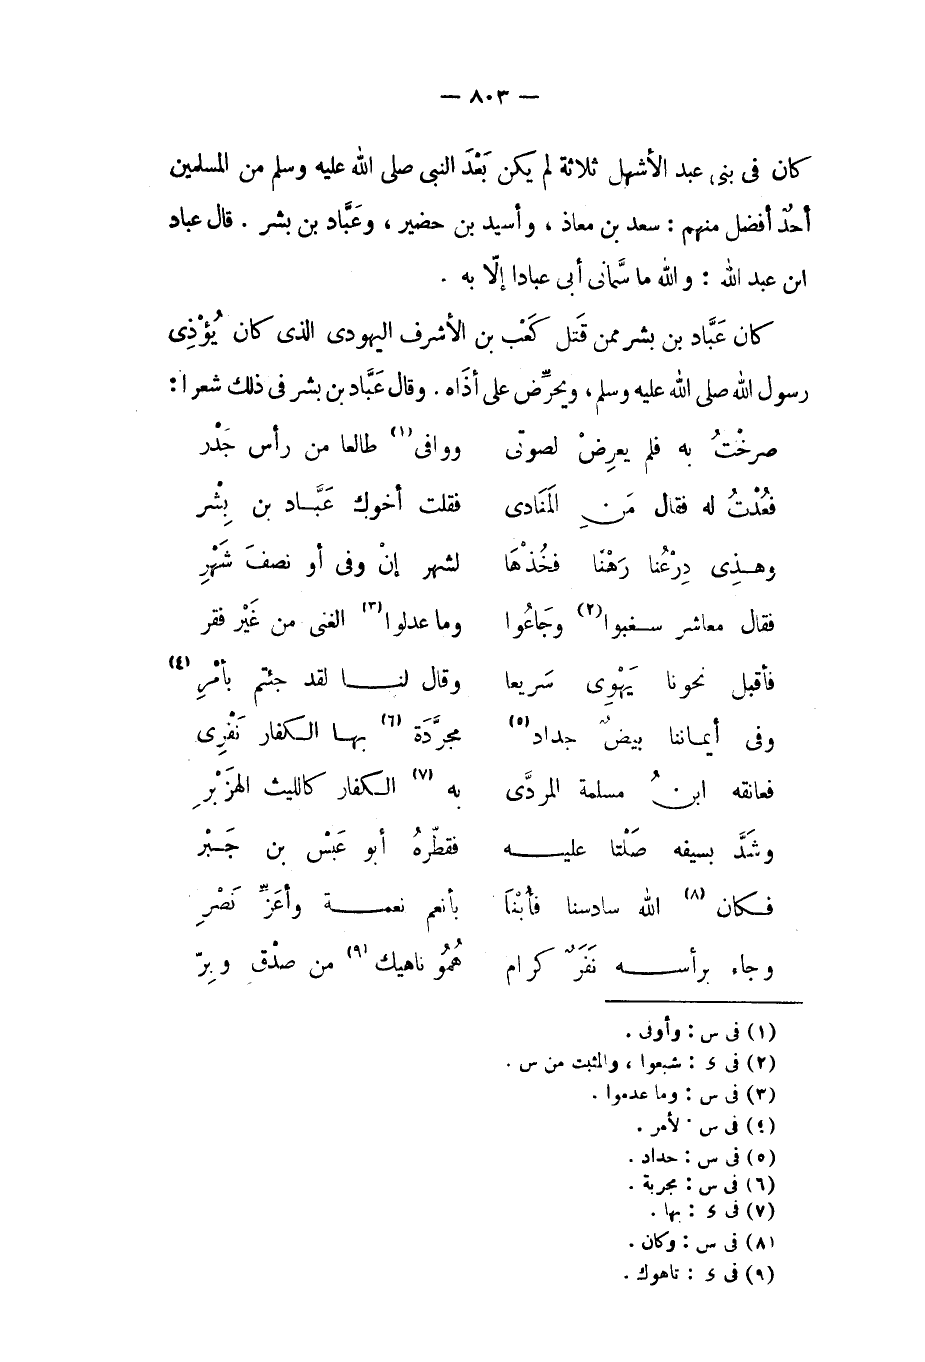 — ٨٠٣ —
كان فى بنى عبد الأشهل ثلاثة لم يكن بَعْدَ النبى صلى الله عليه وسلم من المسلمين
أحدٌ أفضل منهم : سعد بن معاذ ، وأسيد بن حضير ، وعَبَّاد بن بشر . قال عباد
ابن عبد الله : والله ما سمَّانى أبى عبادا إلّا به .
كان عَبَّاد بن بشر ممن قَتَل كَعْب بن الأشرف اليهودى الذى كان يُؤْذِى
رسول الله صلى الله عليه وسلم ، ويحرِّض على أذَاه . وقال عَبَّاد بن بشر فى ذلك شعرا :
صرخْتُ به فلم يعرِضْ لصوتى ووافى(١) طالعا من رأس جَدْر
فعُدْتُ له فقال مَنِ المَنَادى فقلت أخوك عَبَّاد بن بِشْر
وهذِى دِرْعُنا رَهْنًا فخُذْهَا لشهر إنْ وفى أو نصفَ شَهْرِ
فقال معاشر سغبوا(٢) وجَاعُوا وما عدلوا(٣) الغنى من غَيْر فقر
فأقبل نحونا يَهْوِى سَريعا وقال لنا لقد جئتم بأمْرِ(٤)
وفى أيماننا بيضٌ جداد(٥) مجرَّدَة(٦) بها الكفار نَفْرِى
فعانقه ابنُ مسلمة المردَّى به(٧) الكفار كالليث الهزَبْرِ
وشَدَّ بسيفه صَلْتا عليه فقطّرهُ أبو عَبْس بن جَبْر
فكان(٨) الله سادسنا فأُبْنَا بأنعم نعمة وأعَزِّ نَصْرِ
وجاء برأسه نَفَرٌ كرام هُمُو ناهيك(٩) من صدْقٍ وبِرّ
(١) فى س : وأوفى .
(٢) فى ى : شبعوا ، والمثبت من س .
(٣) فى س : وما عدموا .
(٤) فى س : لأمر .
(٥) فى س : حداد .
(٦) فى س : مجربة .
(٧) فى ى : بها .
(٨) فى س : وكان .
(٩) فى ى : تاهوك .